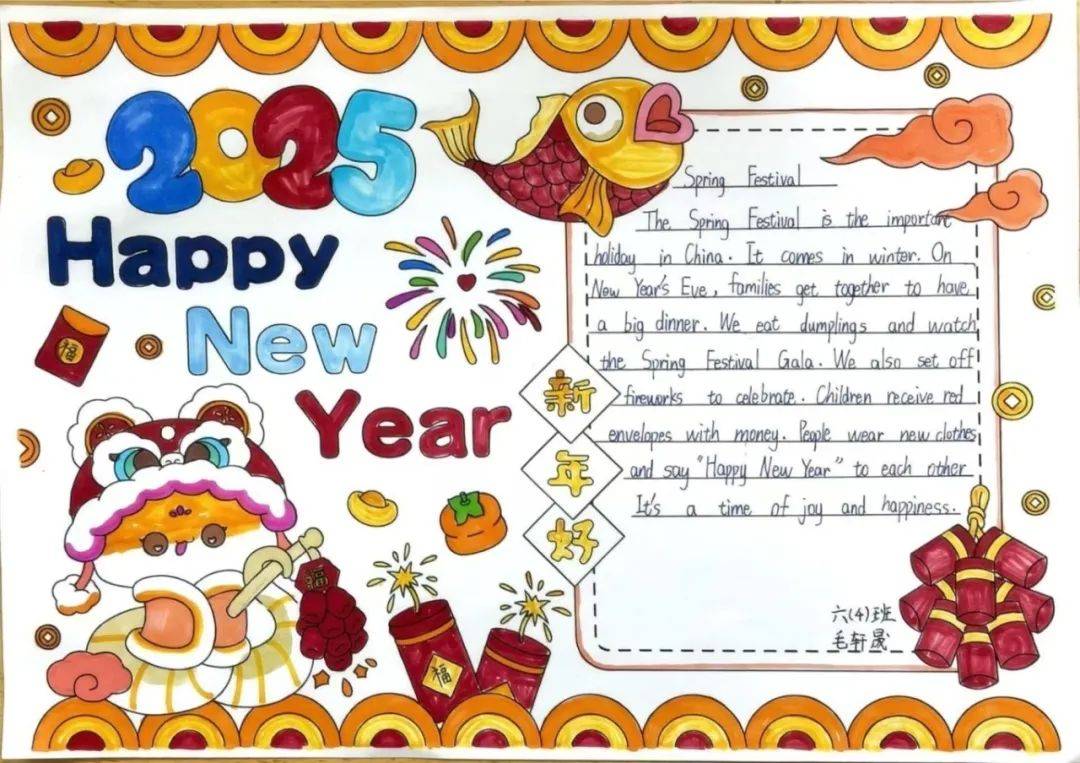 2025
Happy
New
Year
福
新
年
好
福
福
Spring Festival
The Spring Festival is the important
holiday in China. It comes in winter. On
New Year's Eve, families get together to have
a big dinner. We eat dumplings and watch
the Spring Festival Gala. We also set off
fireworks to celebrate. Children receive red
envelopes with money. People wear new clothes
and say "Happy New Year" to each other
It's a time of joy and happiness.
六(4)班
毛轩晟